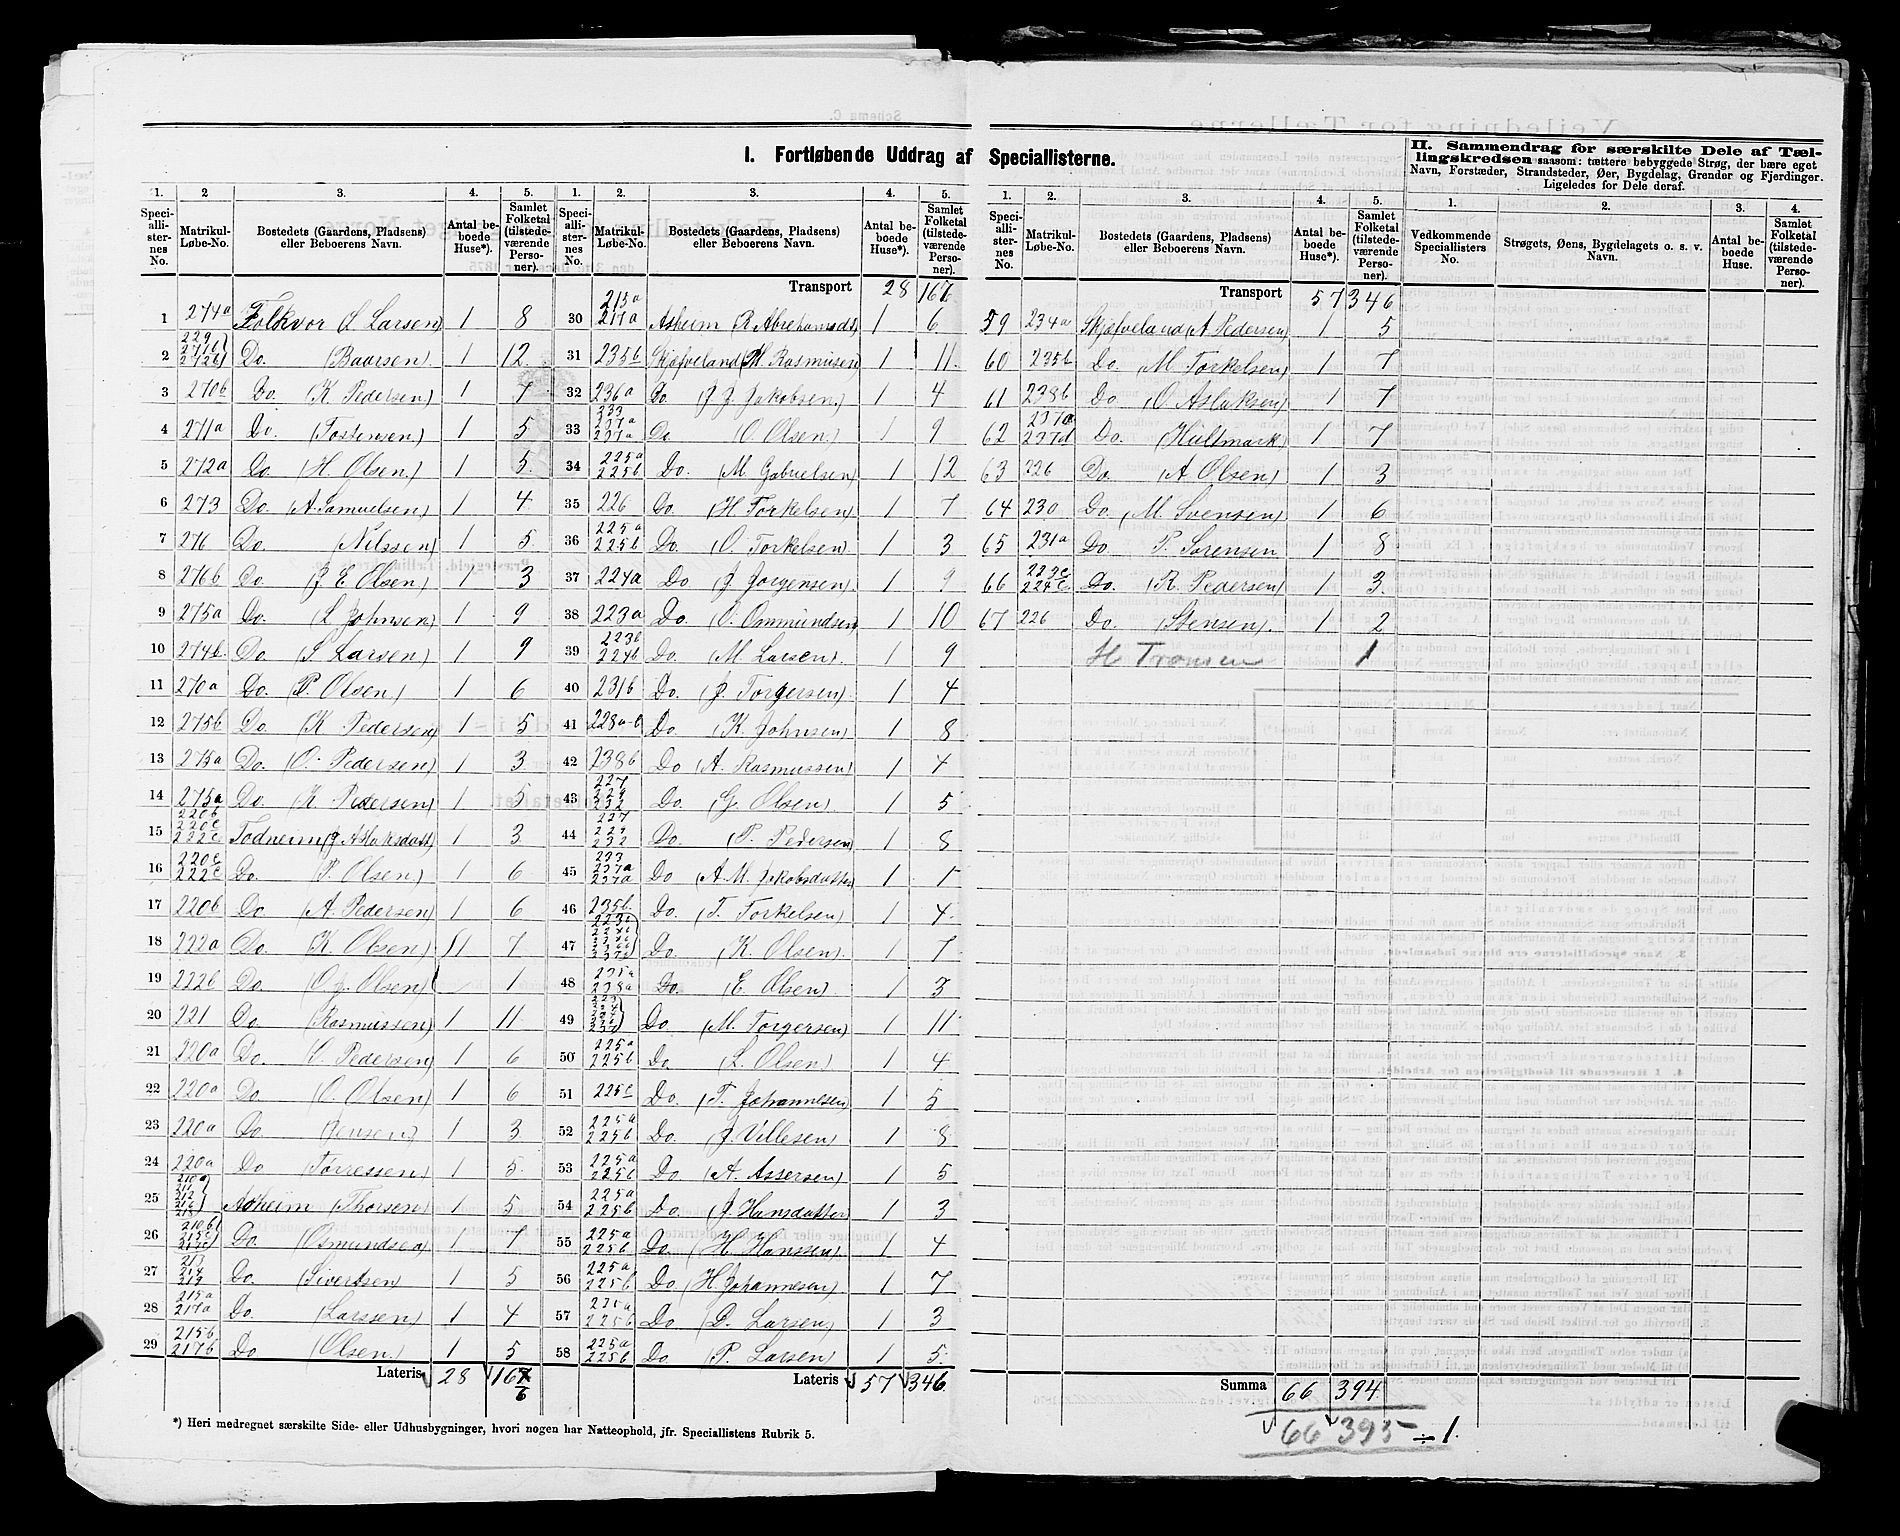 I. Fortløbende Uddrag af Speciallisterne.
II. Sammendrag for særskilte Dele af Tæl-
lingskredsen saasom: tættere bebyggede Strøg, der bære eget
Navn, Forstæder, Strandsteder, Øer, Bygdelag, Grender og Fjerdinger.
Ligeledes for Dele deraf.
1. 2 3. 4. 5.
Speciallisternes No. Matrikul-Løbe-No. Bostedets (Gaardens, Pladsens) eller Beboerens Navn. Antal beboede Huse*). Samlet Folketal (tilstedeværende Personer).
1 274a Folkvor (L Larsen) 1 8
2 229 271b 272b Do. (Baarsen) 1 12.
3 270b Do. (K Pedersen) 1 7
4 271a Do. (Tostensen) 1 5
5 272a Do. (H. Olsen) 1 5
6 273 Do. (A. Samuelsen) 1 4
7 276 Do. (Nilssen) 1 5
8 276b Do. (J E Olsen) 1 3
9 275a Do. (L Johnsen) 1 9
10 274b Do. (S Larsen) 1 9
11 270a Do. (P. Olsen) 1 6
12 275b Do. (K Pedersen) 1 5
13 275a Do. (O. Pedersen) 1 3
14 275a Do. (K Pedersen) 1 5
15 220b 220c 222c Todneim (J Aslaksdatt) 1 3
16 220c 222c Do. (P. Olsen) 1 6
17 220b Do (A. Pedersen) 1 6
18 222a Do. (K. Olsen) 1 7
19 222b Do. (O. J. Olsen) 1
20 221 Do. (Rasmussen) 1 11
21 220a Do. (S. Pedersen) 1 6
22 220a Do (O. Olsen) 1 6
23 220a Do (Jensen) 1 3
24 220a Do (Torressen) 1 5
25 210a 211 212 216 Asheim (Thorsen) 1 5
26 210b 215c 217c Do. (Osmundsen) 1 7
27 213 214 219 Do. (Sivertsen) 1 5
28 215a 217a Do. (Larssen) 1 4
29 215b 217b Do (Olsen) 1 5
Lateris 28 167 6
1. 2. 3. 4. 5.
Speciallisternes No. Matrikul-Løbe-No. Bostedets (Gaardens, Pladsens) eller Beboerens Navn. Antal beboede Huse*). Samlet Folketal (tilstedeværende Personer).
Transport 28 167
30 215a 217a Asheim (R. Abrahamsdt) 1 6
31 235b Skjæveland (M Rasmusen) 1 11
32 236a Do. (J. J. Jakobsen) 1 4
33 233 237a 237a Do (O. Olsen) 1 9
34 225a 225b Do. (M. Gabrielsen) 1 12
35 226 Do. (H. Torkelsen) 1 7
36 225a 225b Do. (O. Torkelsen) 1 3
37 224a Do (J Jorgensen) 1 9
38 223a Do. (O. Ommundsen) 1 10
39 223b 224b Do. (M. Larsen) 1 9
40 231b Do. (J. Torgersen) 1 4
41 228a-c Do (K. Johnsen) 1 8
42 238b Do (A. Rasmussen) 1 4
43 227 229 232 Do. (G. Olsen) 1 5
44 227 229 232 Do. (P. Pedersen) 1 8
45 233 237a 237a Do (A. M. Jakobsdatter) 1 1
46 235b Do. (T. Torkelsen) 1 4
47 Do. (K. Olsen) 1 7
48 235a 238a Do. (E. Olsen) 1 3
49 Do (M. Torgersen) 1 11
50 225a 225b Do (L. Olsen) 1 4
51 225c Do. (T. Johannesen) 1 5
52 225a 225b Do. (J. Villesen) 1 8
53 225a 225b Do (A. Assersen) 1 5
54 225a 225b Do. (J Hansdatter) 1 3
55 225a 225b Do. (H. Hanssen) 1 4
56 225a 225b Do (H. Johannesen) 1 7
57 225a 225b Do (D. Larsen) 1 3
58 225a 225b Do. (P. Larsen) 1 5
Lateris 57 346.
1. 2. 3. 4. 5.
Speciallisternes No. Matrikul-Løbe-No. Bostedets (Gaardens, Pladsens) eller Beboerens Navn. Antal beboede Huse*). Samlet Folketal (tilstedeværende Personer).
Transport 57 346
59 234a Skjæveland (A Pedersen) 1 5
60 235b Do. (M. Torkelsen) 1 7
61 238b Do (O. Aslaksen) 1 7
62 237a 237d Do. (Hultmark) 1 7
63 226 Do. (A Olsen) 1 3
64 230 Do. (M. Svensen) 1 6
65 231a Do P. Sørensen 1 8
66 223c 224c Do. (R. Pedersen) 1 3.
67 226 Do. (Stensen). 1 2
H. Tronsen 1
Summa 66 394
66 395 ÷ 1.
1. 2. 3. 4.
Vedkommende Speciallisters No. Strøgets, Øens, Bygdelagets o. s. v. Navn. Antal beboede Huse. Samlet Folketal (tilstedeværende Personer).
*) Heri medregnet særskilte Side- eller Udhusbygninger, hvori nogen har Natteophold, jfr. Speciallistens Rubrik 5.